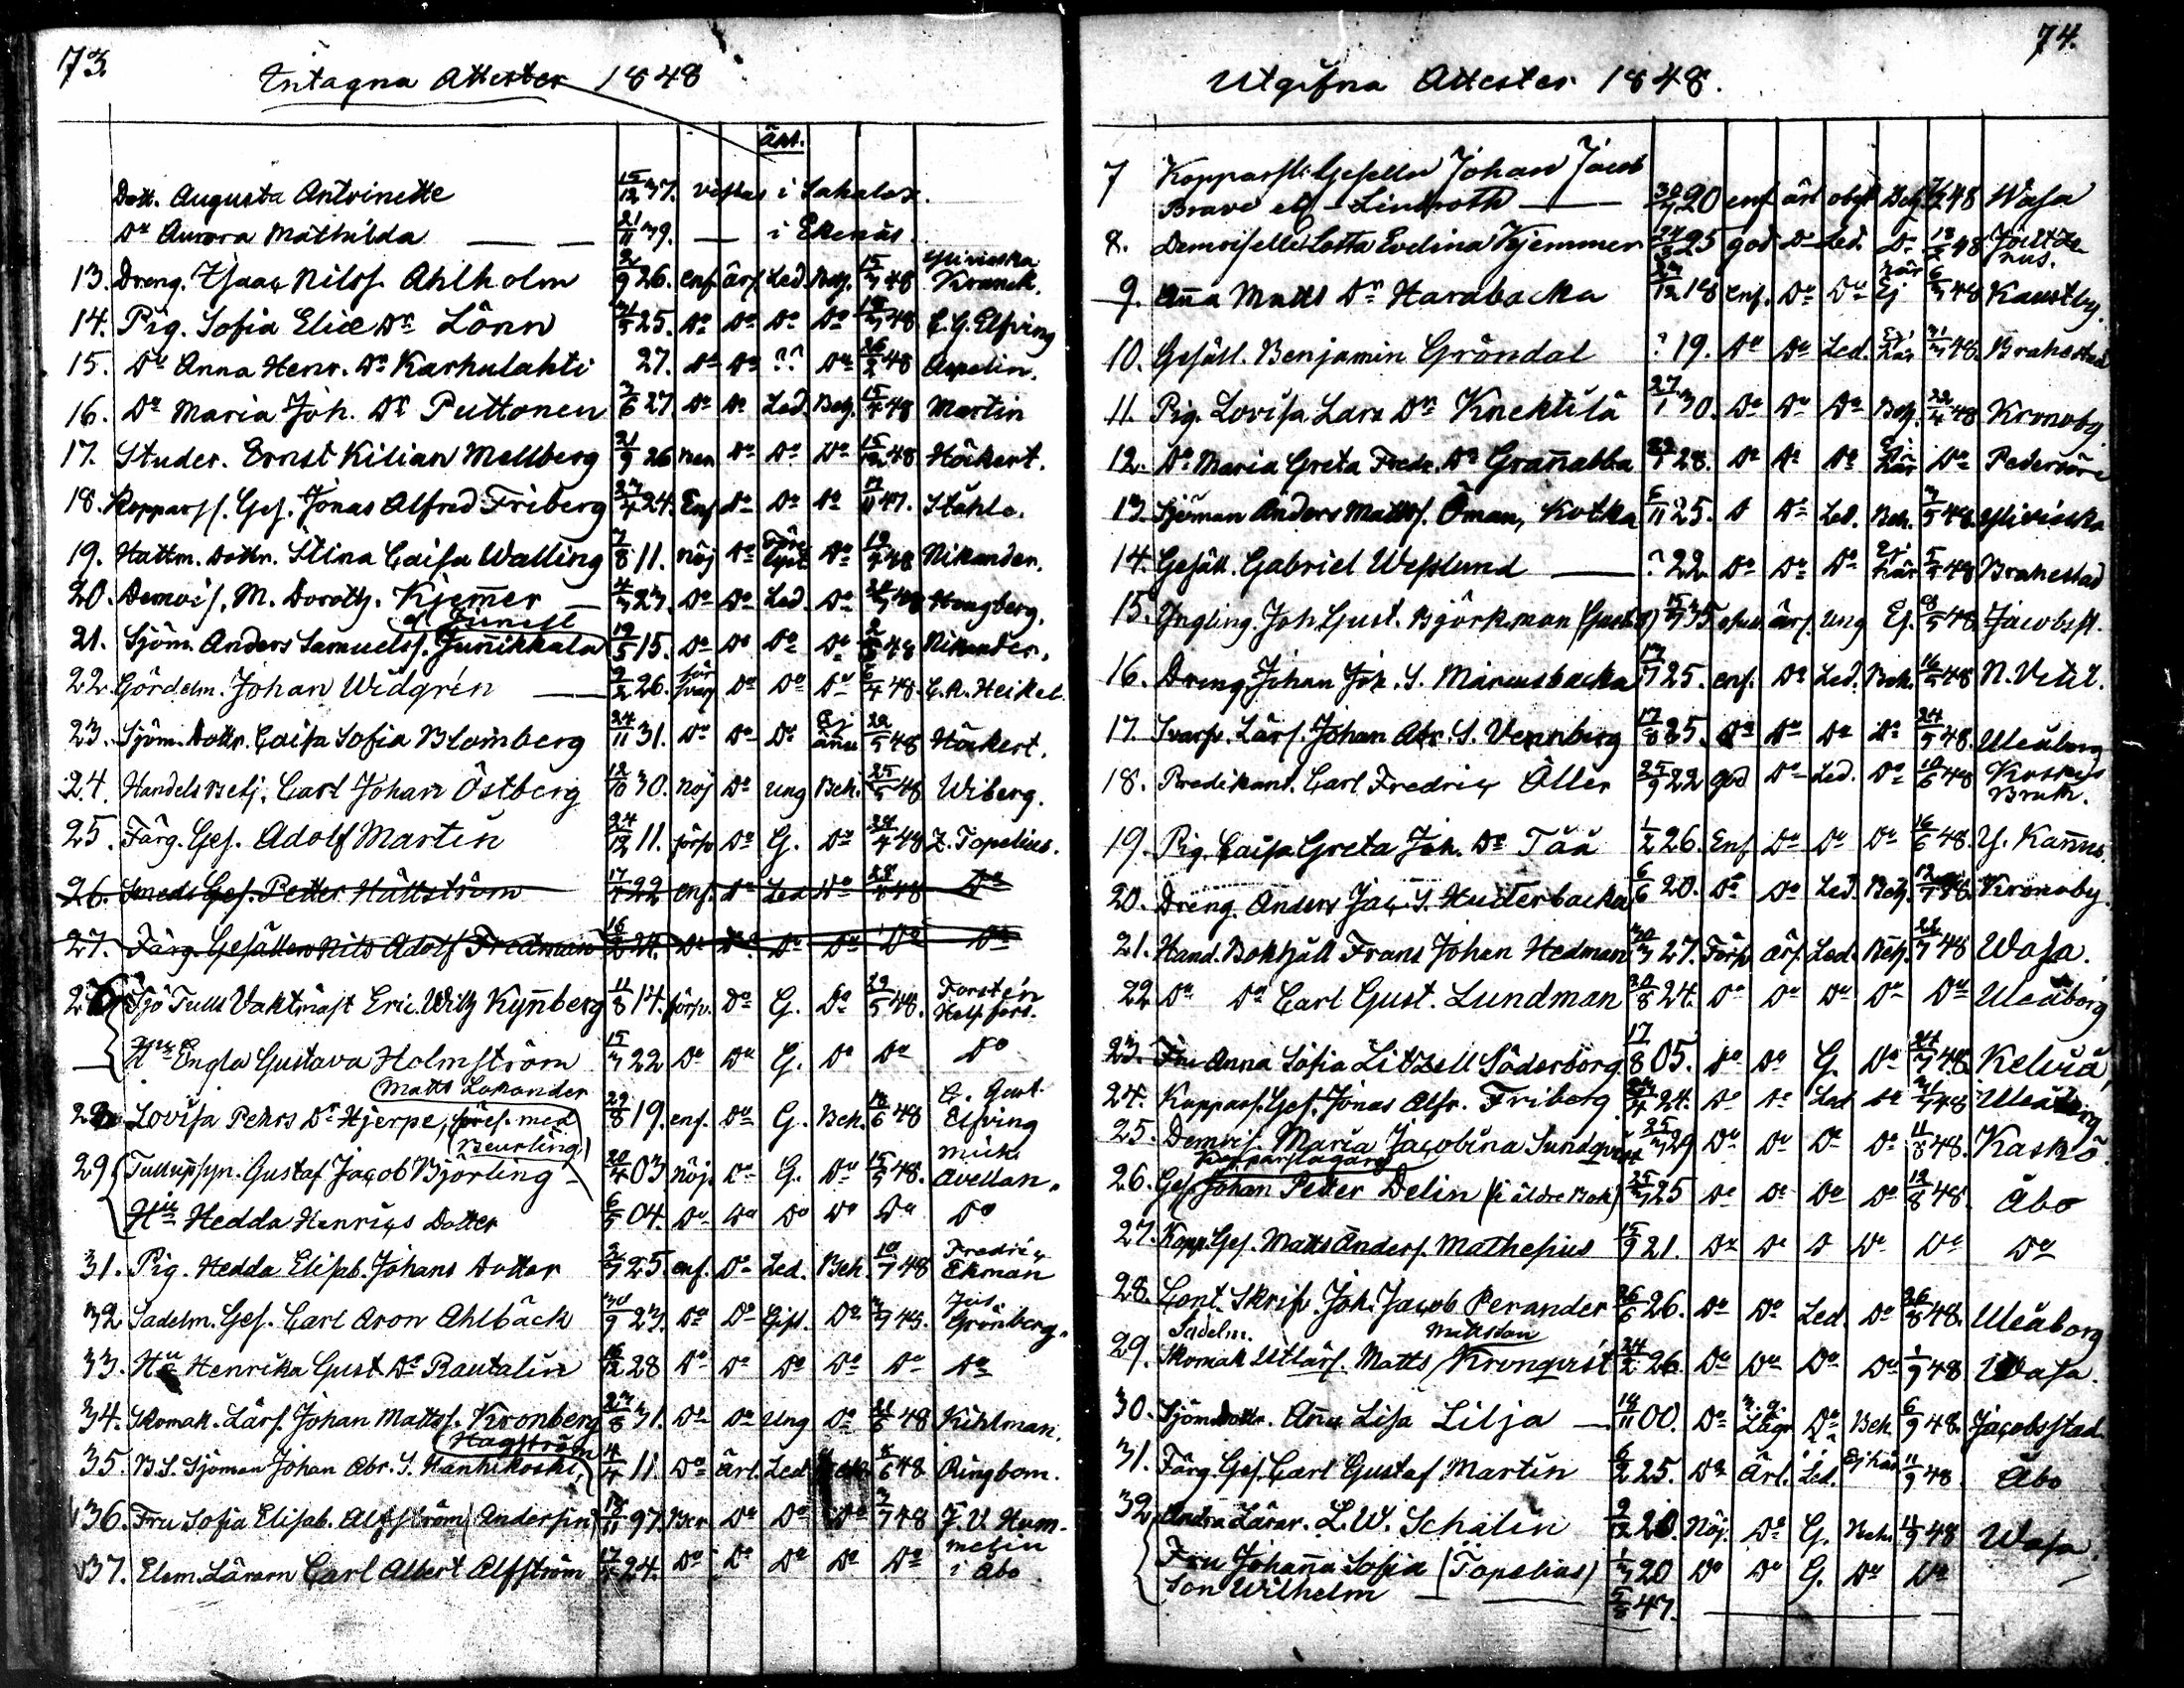 73.
Intagna Attester 1848
äkt.
Dott. Augusta Antoinette 15/12 37. vistas i Lahalax.
Do Aurora Mathilda — — 21/11 39. — i Ekenäs.
13. Dreng. Isaac Nilss. Ahlholm 2/9 26. enf. ärf. Led. Beh. 15/3 48 Ylivieska Kranck.
14. Pig. Sofia Eliæ Dr Lönn 31/5 25. Do Do Do Do 18/3 48 C. G. Elfving
15. Do Anna Henr. Dr Karhulahti 27. Do Do ?? Do 26/2 48 Aspelin.
16. Do Maria Joh. Dr Puttonen 3/6 27 Do Do Led. Beh. 15/4 48 Martin
17. Studer. Ernst Kilian Mellberg 21/9 26 Do Do Do 15/12 48 Höckert.
18. Kopparsl. Ges. Jonas Alfred Friberg 23/4 24. Enf Do Do Do 17/11 47. Ståhle.
19. Hattm. Dottr. Stina Caisa Walling 7/8 11. nöj Do Do 12/4 48 Nikander.
20. Demois. M. Doroth. Kjemer — 4/3 23. Do Do Led. Do Hougberg.
21. Sjöm. Anders Samuelss. Junnikkala el. Junell 19/5 15. Do Do Do Do 2/5 48 Nikander.
22. Gördelm. Johan Widgrén — 9/2 26. för svar Do Do Do 6/4 48. C. A. Heikel
23. Sjöm. Dottr. Caisa Sofia Blomberg 24/11 31. Do Do Do Ej ännu 22/5 48 Höckert.
24. Handels Betj. Carl Johan Östberg 12/10 30. nöj Do ung Beh. 25/5 48 Wiberg.
25. Färg. Ges. Adolf Martin 24/12 11. försv Do G. Do 28/4 48 Z. Topelius.
26. Smeds Ges. Petter Hättström 17/7 22 enf. Do Led Do 28/4 48 Do
27. Färg. Gesällen Nils Adolf Fredman 16/2 24. Do Do Do Do Do Do
Sjö Tulls Vaktmäst Eric Wilh Kynberg 11/8 14. försv. Do G. Do 29/5 48. Forstén Helsfors.
— Hu Engla Gustava Holmström 15/3 22 Do Do G. Do Do Do
Lovisa Pehrs Dr Hjerpe, förif. med Matts Lokander 29/8 19. enf. Do G. Beh. 18/6 48 G. Gust. Elfving
29 Tulluppsyn. Gustaf Jacob Björling (Beurling) 20/4 03 nöj. Do G. Do 15/5 48. Mich. Avellan.
Hu Hedda Henrics Dotter 6/5 04. Do Do Do Do Do Do
31. Pig. Hedda Elisab. Johans Dotter 3/7 25. enf. Do Led. Beh. 10/7 48 Fredric Ekman
32 Sadelm. Ges. Carl Aron Ahlbäck 30/9 23. Do Do Gift. Do Grönberg.
33. Hu Henrika Gust. Dr Rautalin 16/12 28 Do Do Do Do Do Do
34. Skomak. Lärl. Johan Mattss. Kronberg 23/8 31. Do Do ung Do 21/6 48 Kihlman.
35. B. S. Sjöman Johan Abr. S. Hanhikoski, (Hagström 4/4 11 Do ärl. Led. 8/6 48 Ringbom.
36. Fru Sofia Elisab. Alfström (Andersin) 13/11 97. Ber Do Do Do 3/7 48 F. V. Hummelin
37. Elem. Lärarn Carl Albert Alfström 17/7 24. Do Do Do Do Do i Åbo
74.
Utgifna Attester 1848.
7 Kopparsl. Gesellen Johan Jacob
Brave elf - Lindroth — 30/7 20 enf ärl obgt 48 Wasa
8. Demoiselle Lotta Evelina Kjemmer 24/3 25 god Do Led. Do 13/2 48
9. Anna Matts Dr Harabacka 23/12 18 enf. Do Do Ej här 6/3 48 Kaustby.
10. Gesäll. Benjamin Gröndal ? 19. Do Do Led. Ej här 31/3 48. Brahestad
11. Pig. Lovisa Lars Dr Knektilä 27/1 30. Do Do Do Beh. 22/4 48 Kronoby
12. Do Maria Greta Fredr. Dr Grannabba 28. Do Do Do Ej här Do Pedersöre
13. Sjöman Anders Mattss. Öman, Kotka 5/11 25. D Do Led. Beh. 3/5 48. Ylivieska
14. Gesäll. Gabriel Weslund — ? 22 Do Do Do Ej här 5/5 48 Brahestad
15. Yngling. Joh. Gust. Björkman 15/7 35 ärf. ung Ej. 8/5 48. Jacobst.
16. Dreng Johan Joh. S. Marcusbacka 13/7 25. enf. Do Led. Beh. 16/5 48 N. Vetil.
17 Svarfv. Lärl. Johan Abr. S. Vennberg 17/8 25. Do Do Do Do 24/5 48. Uleåborg
18. Predikant. Carl Fredric Öller 25/9 22 god Do Led. Do 10/6 48 Koskis Bruk.
19. Pig. Caisa Greta Joh. Dr Tåå 1/2 26. Enf Do Do Do 16/6 48. Y. Kannus.
20. Dreng. Anders Jac. S. Huderbacka 6/6 20. Do Do Led. Beh. 12/7 48. Kronoby.
21. Hand. Bokhåll Frans Johan Hedman 30/3 27. Försv ärf. Led. Beh. 22/7 48 Wasa.
22 Do Do Carl Gust. Lundman 20/8 24. Do Do Do Do Do Uleåborg
23. Fru Anna Sofia Litzell Söderborg 17/8 05. Do Do G. Do 24/7 48. Kelviå,
24. Kopparsl. Ges. Jonas Alfr. Friberg 23/4 24. Do Do Led Do 31/7 48 Uleåborg
25. Demois. Maria Jacobina Sundqvist 25/3 29 Do Do Do Do 11/8 48. Kaskö.
26. Ges. Kopparslagare Johan Petter Delin (i äldre Bok) 25/3 25 Do Do Do Do 12/8 48. Åbo
27. Kopp. Ges. Matts Anders. Mathesius 15/9 21. Do Do D Do Do Do
28. Cont. Skrifv. Joh. Jacob Perander 26/6 26. Do Do Led. Do 26/8 48. Uleåborg
29. Sadelm. Skomak Utlärl. Matts Mattsson Kronqvist 24/2 26. Do Do Do Do 1/9 48 Wasa.
30. Sjöm. Dottr. Anna Lisa Lilja — 18/11 00. Do Do Beh. 6/9 48. Jacobsstad.
31. Färg. Ges. Carl Gustaf Martin 6/2 25. Do Ärl. Led. Ej här 11/9 48 Åbo
32 Andra Lärar. L. W. Schalin 9/12 20. Nöj. Do G. Beh. 11/9 48 Wasa.
Fru Johanna Sofia (Topelius) 1/3 20 Do Do G. Do Do
Son Wilhelm — — 5/8 47. —